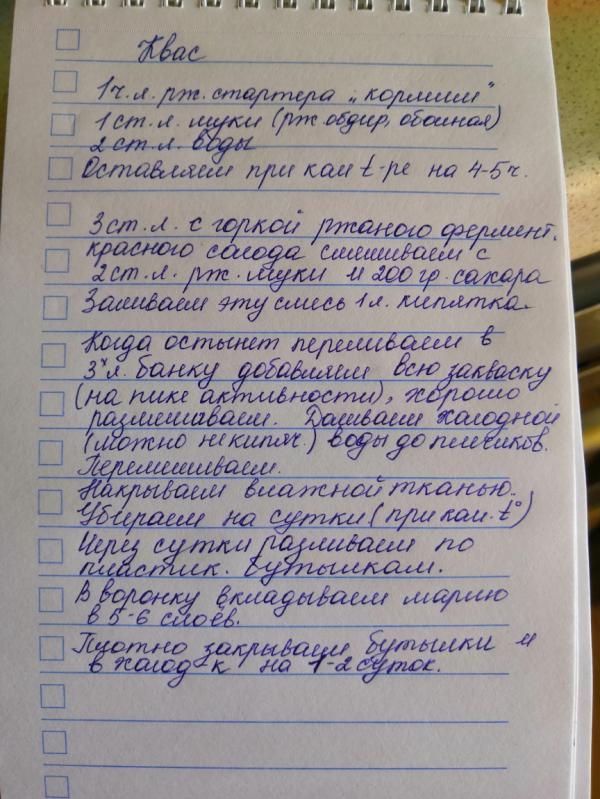 Квас
1 ч. л. рж. стартера „кормим"
1 ст. л. муки (рж обдир, обойная)
2 ст. л. воды
Оставляем при ком t-ре на 4-5 ч.
3 ст. л. с горкой ржаного фермент.
красного солода смешиваем с
2 ст. л. рж. муки и 200 гр. сахара
Заливаем эту смесь 1 л. кипятка.
Когда остынет переливаем в
3х л. банку добавляем всю закваску
(на пике активности), хорошо
размешиваем. Доливаем холодной
(можно некипяч.) воды до плечиков.
Перемешиваем.
Накрываем влажной тканью.
Убираем на сутки (при ком. t°)
Через сутки разливаем по
пластик. бутылкам.
В воронку вкладываем марлю
в 5-6 слоёв.
Плотно закрываем бутылки и
в холод-к на 1-2 суток.